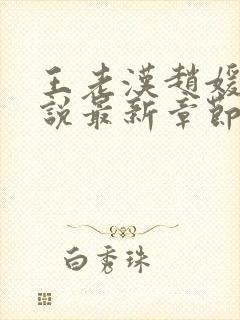 王老漢趙媛
說最新章節
白秀珠